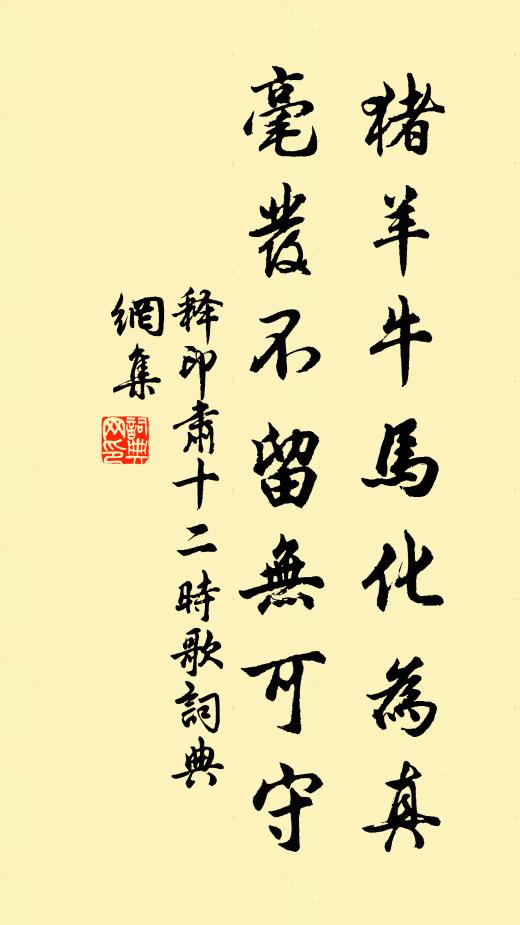 猪羊牛馬化為真
毫發不留無可守
释印肅十二時歌詞典
網集
詞典
网印